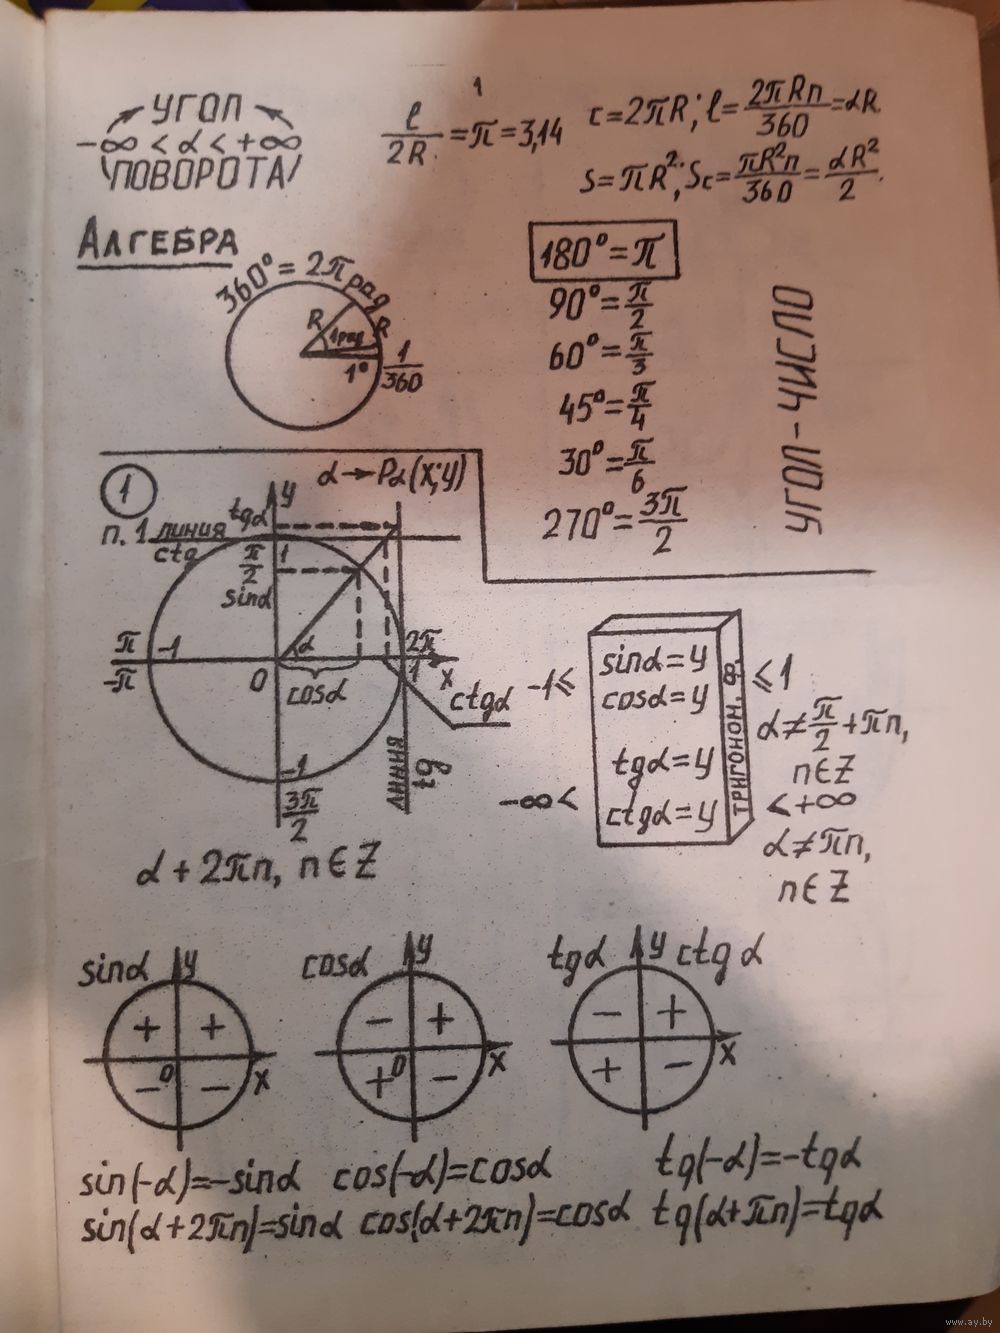 УГОЛ
-∞ < α < +∞
ПОВОРОТА
1
l/2R = π = 3,14
c = 2πR; l = 2πRn/360 = αR
S = πR²; Sc = πR²n/360 = αR²/2.
АЛГЕБРА
360° = 2π рад
R
1 рад
R
1°
1/360
180° = π
90° = π/2
60° = π/3
45° = π/4
30° = π/6
270° = 3π/2
УГОЛ-ЧИСЛО
1
α → Pα(x;y)
y
tgα
п. 1 линия
ctg
π/2
1
sinα
α
π
-1
-π
0
cosα
2π
1
x
ctgα
линия
tg
-1
3π/2
α + 2πn, n∈Z
-1 ≤
sinα = y
cosα = y
≤ 1
α ≠ π/2 + πn,
n∈Z
tgα = y
-∞ <
ctgα = y
< +∞
ТРИГОНОМ. Ф.
α ≠ πn,
n∈Z
sinα
y
+ +
0
- -
x
cosα
y
- +
0
+ -
x
tgα
y
ctgα
- +
+ -
x
sin(-α)=-sinα cos(-α)=cosα tg(-α)=-tgα
sin(α+2πn)=sinα cos(α+2πn)=cosα tg(α+πn)=tgα
www.ay.by